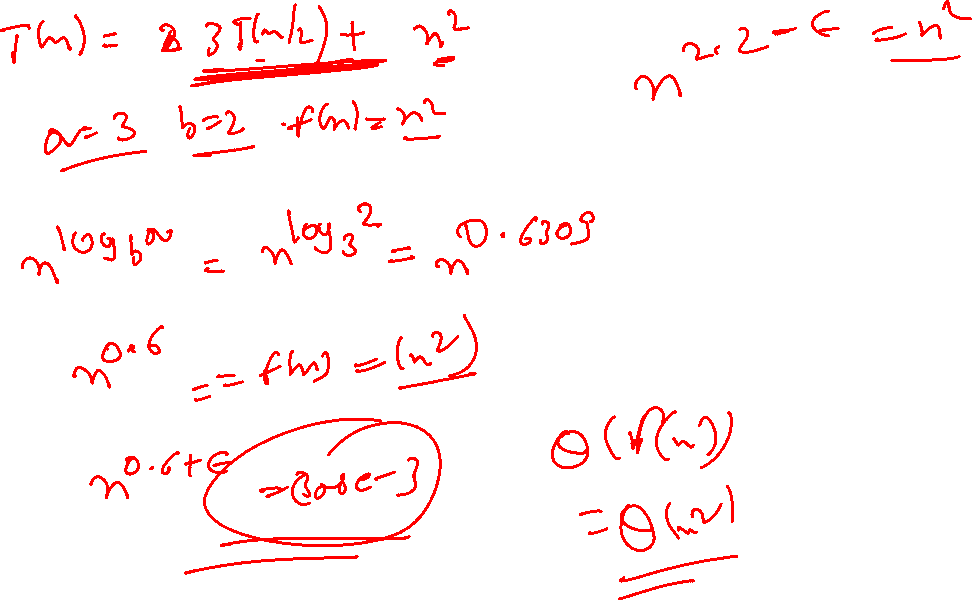 T(n) = 3T(n/2) + n²
n^2.2-ϵ = n²
a=3 b=2 f(n)=n²
n^log_b a = n^log_3 2 = n^0.6309
n^0.6 == f(n) = (n²)
n^0.6+ϵ => Case-3
θ(f(n))
= θ(n²)